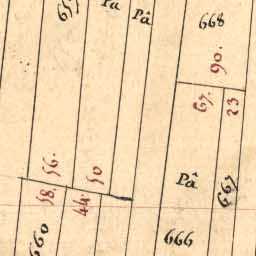 Pâ
Pâ
668
90.
67.
23
56.
58.
50
44.
Pâ
667
660
666